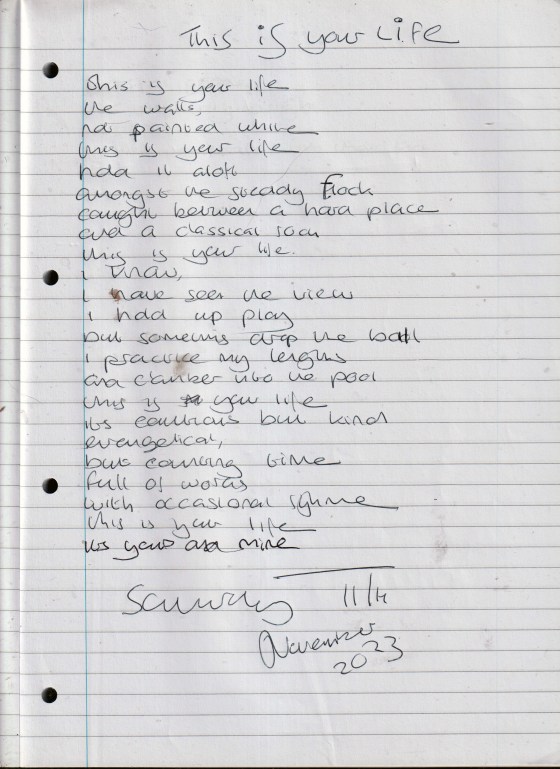 This is your Life
this is your life
the walls,
not painted white
this is your life
hold it aloft
amongst the steady flock
caught between a hard place
and a classical rock
this is your life.
i know,
i have seen the view
i hold up play
but sometimes drop the ball
i practice my lengths
and clamber into the pool
this is your life
its cautious but kind
evangelical,
but counting time
full of words
with occasional rhyme
this is your life
its yours and mine
Saturday 11/11
November
2023